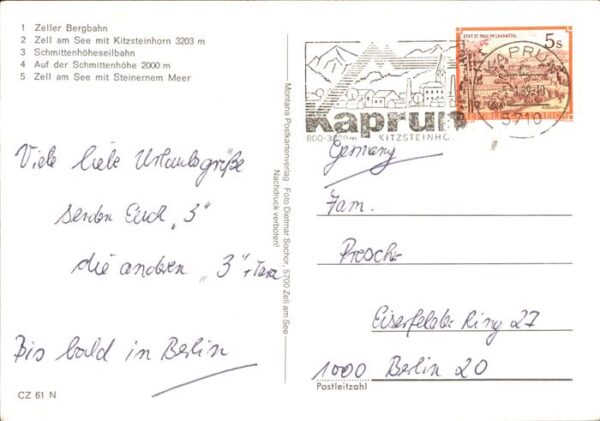 1 Zeller Bergbahn
2 Zell am See mit Kitzsteinhorn 3203 m
3 Schmittenhöheseilbahn
4 Auf der Schmittenhöhe 2000 m
5 Zell am See mit Steinernem Meer
Viele liebe Urlaubsgrüße
senden Euch „3"
die anderen „3" + Tara
Bis bald in Berlin
CZ 61 N
Montana Postkartenverlag Foto Dietmar Sochor, 5700 Zell am See
Nachdruck verboten!
STIFT ST. PAUL IM LAVANTTAL
5s
KAPRUN
5710
Kaprun
KITZSTEINHO
Germany
Fam.
Presche
Eiserfelder Ring 27
1000 Berlin 20
Postleitzahl